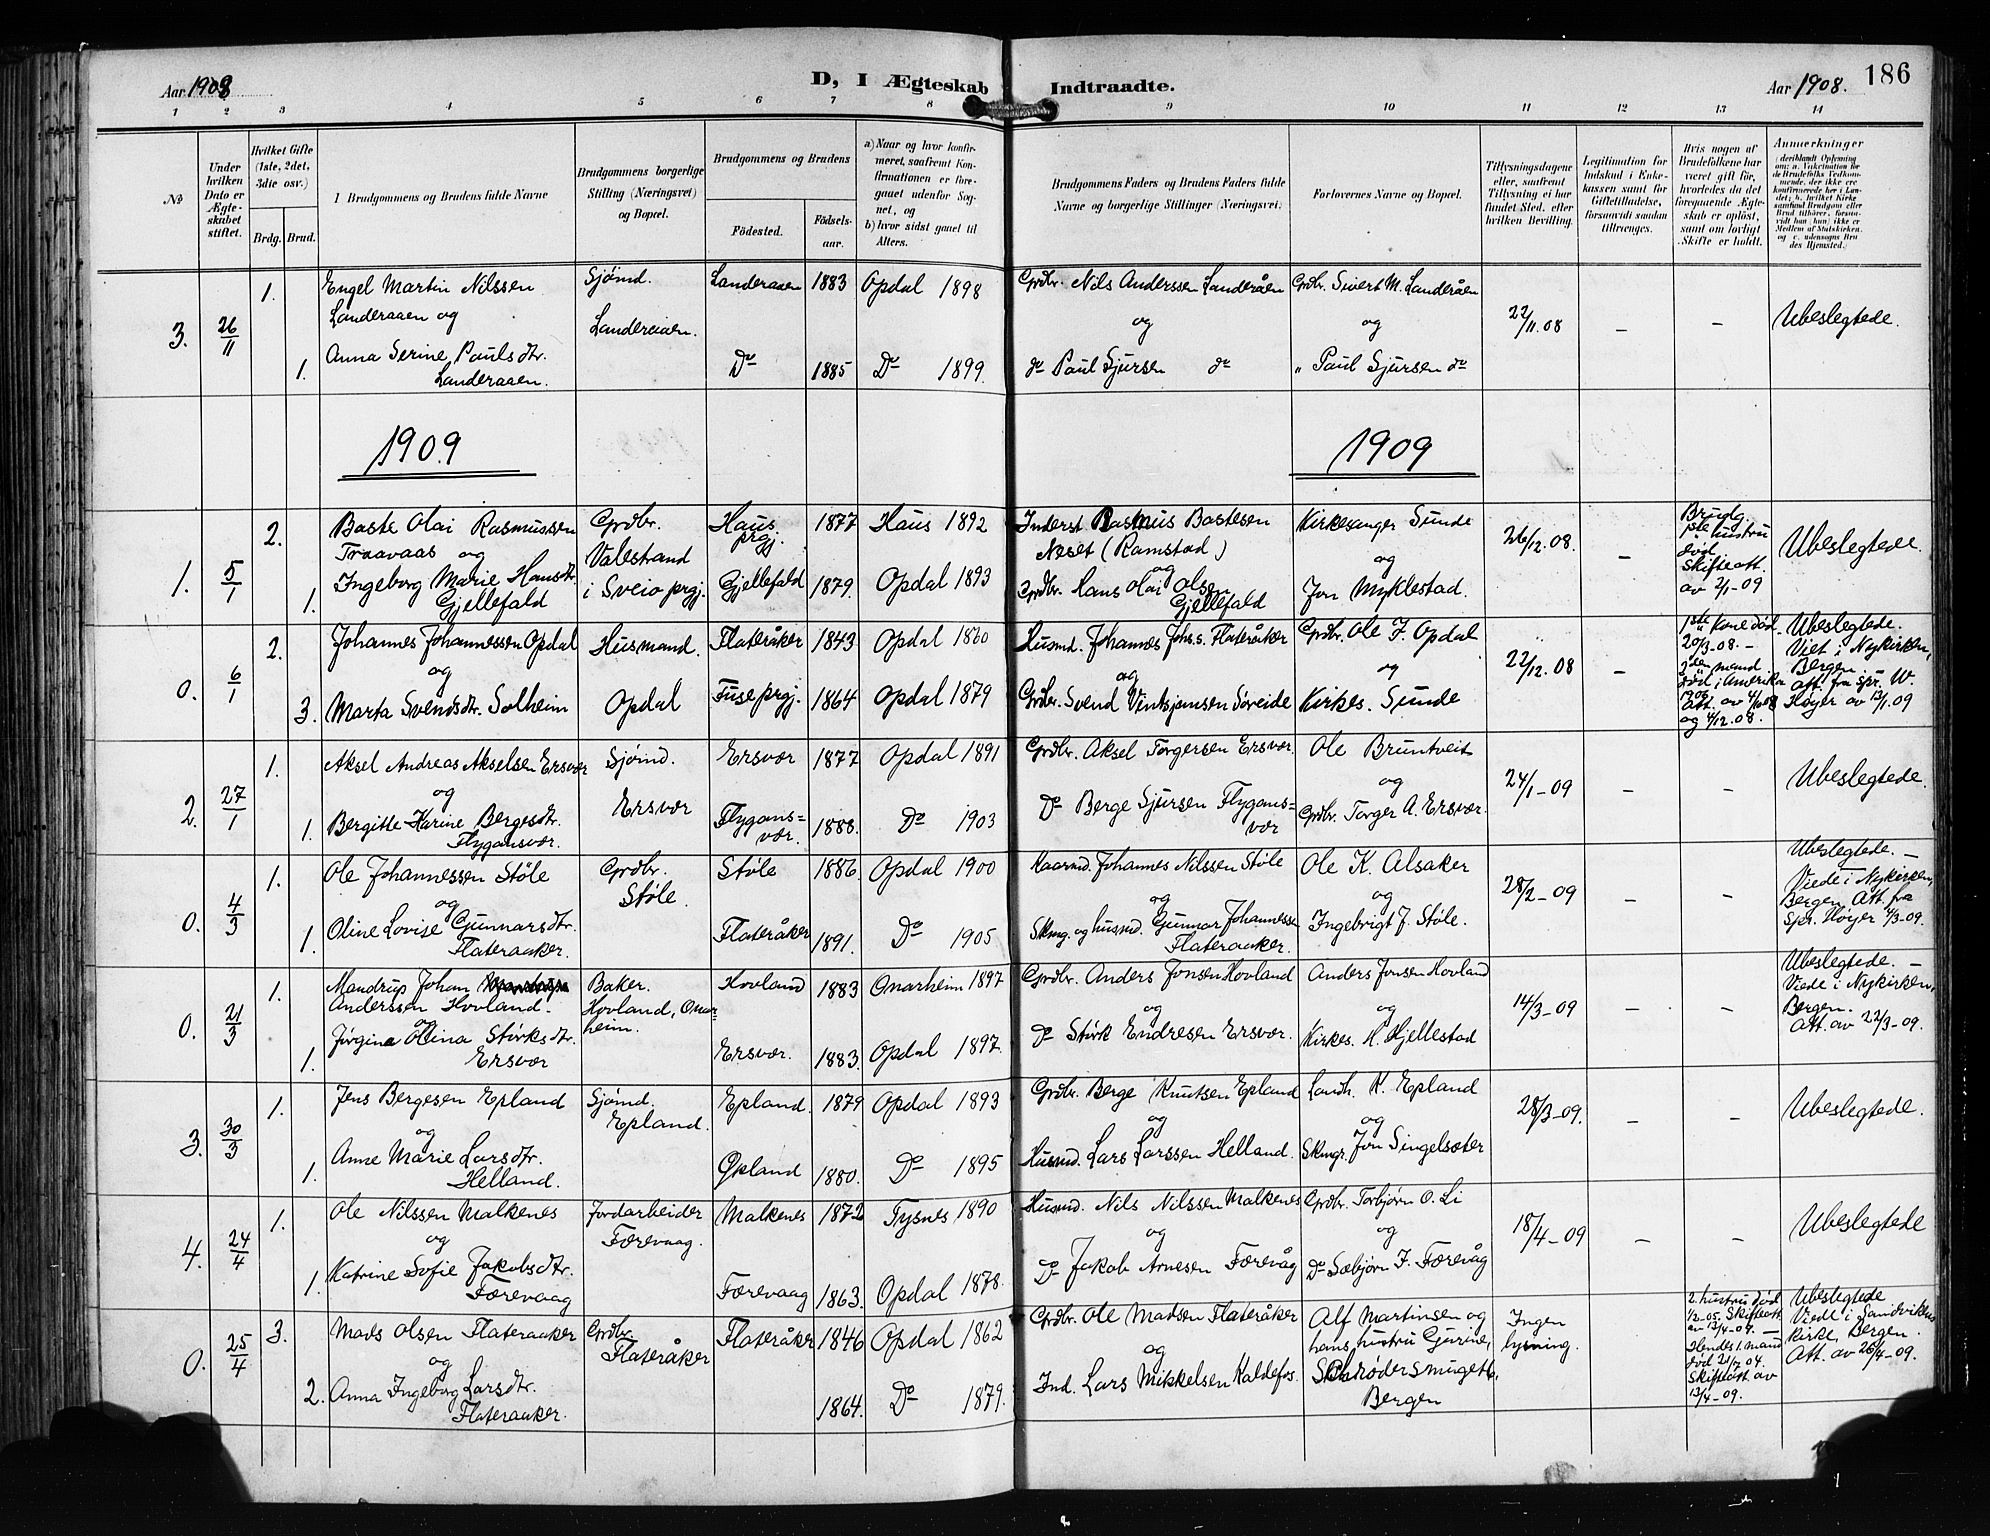 Aar 1908
D, I Ægteskab Indtraadte.
Aar 1908. 186
1 2 3 4 5 6 7 8 9 10 11 12 13 14
No
Under hvilken Dato er Ægte-skabet stiftet.
Hvilket Gifte (1ste, 2det, 3die osv.)
Brdg. Brud.
I Brudgommens og Brudens fulde Navne
Brudgommens borgerlige Stilling (Næringsvei) og Bopæl.
Brudgommens og Brudens
Fødested. Fødsels-aar.
a) Naar og hvor konfir-meret, saafremt Kon-firmationen er fore-gaaet udenfor Sog-net, og
b) hvor sidst gaaet til Alters.
Brudgommens Faders og Brudens Faders fulde Navne og borgerlige Stillinger (Næringsvei)
Forlovernes Navne og Bopæl.
Tillysningsdagene eller, saafremt Tillysning ei har fundet Sted, efter hvilken Bevilling.
Legitimation for Indskud i Enke-kassen samt for Giftetilladelse, forsaavidt saadan tiltrænges.
Hvis nogen af Brudefolkene har været gift før, hvorledes da det foregaaende Ægte-skab er opløst, samt om lovligt Skifte er holdt.
Anmærkninger
3. 26/11 1. Engel Martin Nilssen Landeraaen og Sjømd. Landeraaen 1883 Opdal 1898 Grdbr. Nils Anderssen Landeråen og Grdbr. Sivert M. Landeråen og 22/11.08 – – Ubeslegtede.
1. Anna Serine Paulsdtr. Landeraaen. Do 1885 Do 1899. do Paul Sjursen do " Paul Sjursen do
1909 1909
1. 5/1 2. Baste Olai Rasmussen Traavaas og Grdbr. Valestrand i Sveio prgj. Haus prgj. 1877 Haus 1892 Inderst Rasmus Bastesen Neset (Ramstad) og Kirkesanger Sunde og 26/12.08. – Brudg. 1ste hustru død Skifteatt. av 2/1-09 Ubeslegtede.
1. Ingeborg Marie Hansdtr. Gjellefald Gjellefald 1879. Opdal 1893 Grdbr. Hans Olai Olsen Gjellefald Jon Myklestad.
0. 6/1 2. Johannes Johannessen Opdal og Husmand. Opdal Flateråker 1843 Opdal 1860 Husmd. Johannes Johs.s. Flateråker og Grdbr. Ole J. Opdal og 22/12.08 – 1ste Kone død 20/3-08. – 2den mand død i Amerika 1906 Att. av 4/10 08 og 4/12.08. Ubeslegtede. Viet i Nykirken, Bergen. Att. fra Spr. W. Høyer av 13/1.09
3. Marta Svendsdtr. Solheim Fuse prgj. 1864 Opdal 1879 Grdbr. Svend Vintsjansen Søreide Kirkes. Sunde
2. 27/1 1. Aksel Andreas Akselsen Ersvær og Sjømd. Ersvær Ersvær 1877 Opdal 1891 Grdbr. Aksel Torgersen Ersvær. Ole Bruntveit og 24/1-09 – – Ubeslegtede.
1. Bergitte Karine Bergesdtr. Flygansvær. Flygans=vær. 1888. Do 1903 Do Berge Sjursen Flygans=vær Grdbr. Torger A. Ersvær.
0. 4/3 1. Ole Johannessen Støle og Grdbr. Støle. Støle 1886. Opdal 1900 Kaarmd. Johannes Nilssen Støle og Ole K. Alsaker og 28/2-09 – – Ubeslegtede. – Viede i Nykirken, Bergen Att. fra Spr. Høyer 4/3-09.
1. Oline Lovise Gunnarsdtr. Flateraaker. Flateråker 1891. Do 1905 Skmg. og husmd. Gunnar Johannessen Flateraaker. Ingebrigt J. Støle.
0. 21/3 1. Mandrup Johan Anderssen Hovland. og Baker. Hovland, Onarheim. Hovland 1883 Onarheim 1897 Grdbr. Anders Jonsen Hovland og Anders Jonsen Hovland og 14/3-09 – – Ubeslegtede. – Viede i Nykirken, Bergen. Att. av 22/3-09.
1. Jørgina Olina Størksdtr. Ersvær Ersvær. 1883. Opdal 1897. Do Størk Endresen Ersvær. Kirkes. H. Hjellestad
3. 30/3 1. Jens Bergesen Epland og Sjømd. Epland. Epland. 1879 Opdal 1893 Grdbr. Berge Knutsen Epland og Landh. K. Epland og 28/3-09. – – Ubeslegtede.
1. Anne Marie Larsdtr. Helland. Økland 1880. Do 1895 Husmd. Lars Larssen Helland. Skmgr. Jon Singelsæter
4. 24/4 1. Ole Nilssen Malkenes og Jordarbeider Færevaag. Malkenes 1872 Tysnes 1890 Husmd. Nils Nilssen Malkenes og Grdbr. Torbjørn O. Li og 18/4-09 – – Ubeslegtede
1. Katrine Sofie Jakobsdtr. Færevaag Færevaag 1863. Opdal 1878. Do Jakob Arnesen Færevåg Do Sæbjørn J. Færevåg
0. 25/4 3. Mads Olsen Flateraaker og Grdbr. Flateråker Flateråker 1846 Opdal 1862 Grdbr. Ole Madsen Flateråker og Alf Martinsen og hans hustru Gurine, Schrødersmuget 6, Bergen Ingen lysning. 2. hustru død 1/2-05. Skifteatt. av 13/4-09. – Hendes 1. mand død 21/7 04. Skifteatt av 13/4-09. Ubeslegtede Viede i Sandvikens kirke, Bergen. Att. av 26/4-09.
2. Anna Ingeborg Larsdtr. Flateraaker. 1864. Do 1879. Ind. Lars Mikkelsen Kaldefos.